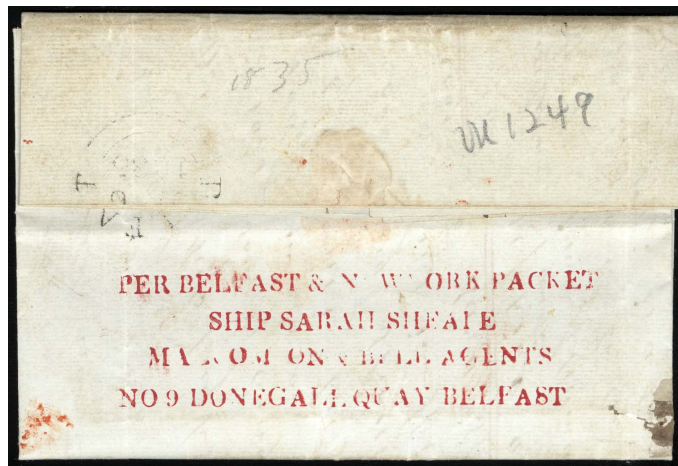 1835
1249
PER BELFAST & N W ORK PACKET
SHIP SARAH SHEAFE
AGENTS
NO 9 DONEGALL QUAY BELFAST